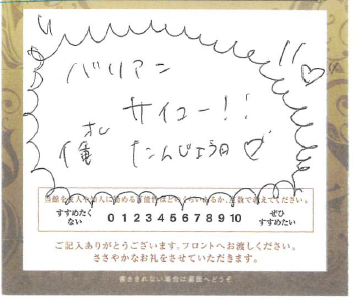 バリアン
サイコー!!
オレ
俺 たんじょう日♡
当館を友人や知人に勧める可能性はどのくらいあるか、点数で教えてください。
すすめたくない 0 1 2 3 4 5 6 7 8 9 10 ぜひすすめたい
ご記入ありがとうございます。フロントへお渡しください。
ささやかなお礼をさせていただきます。
書ききれない場合は裏面へどうぞ